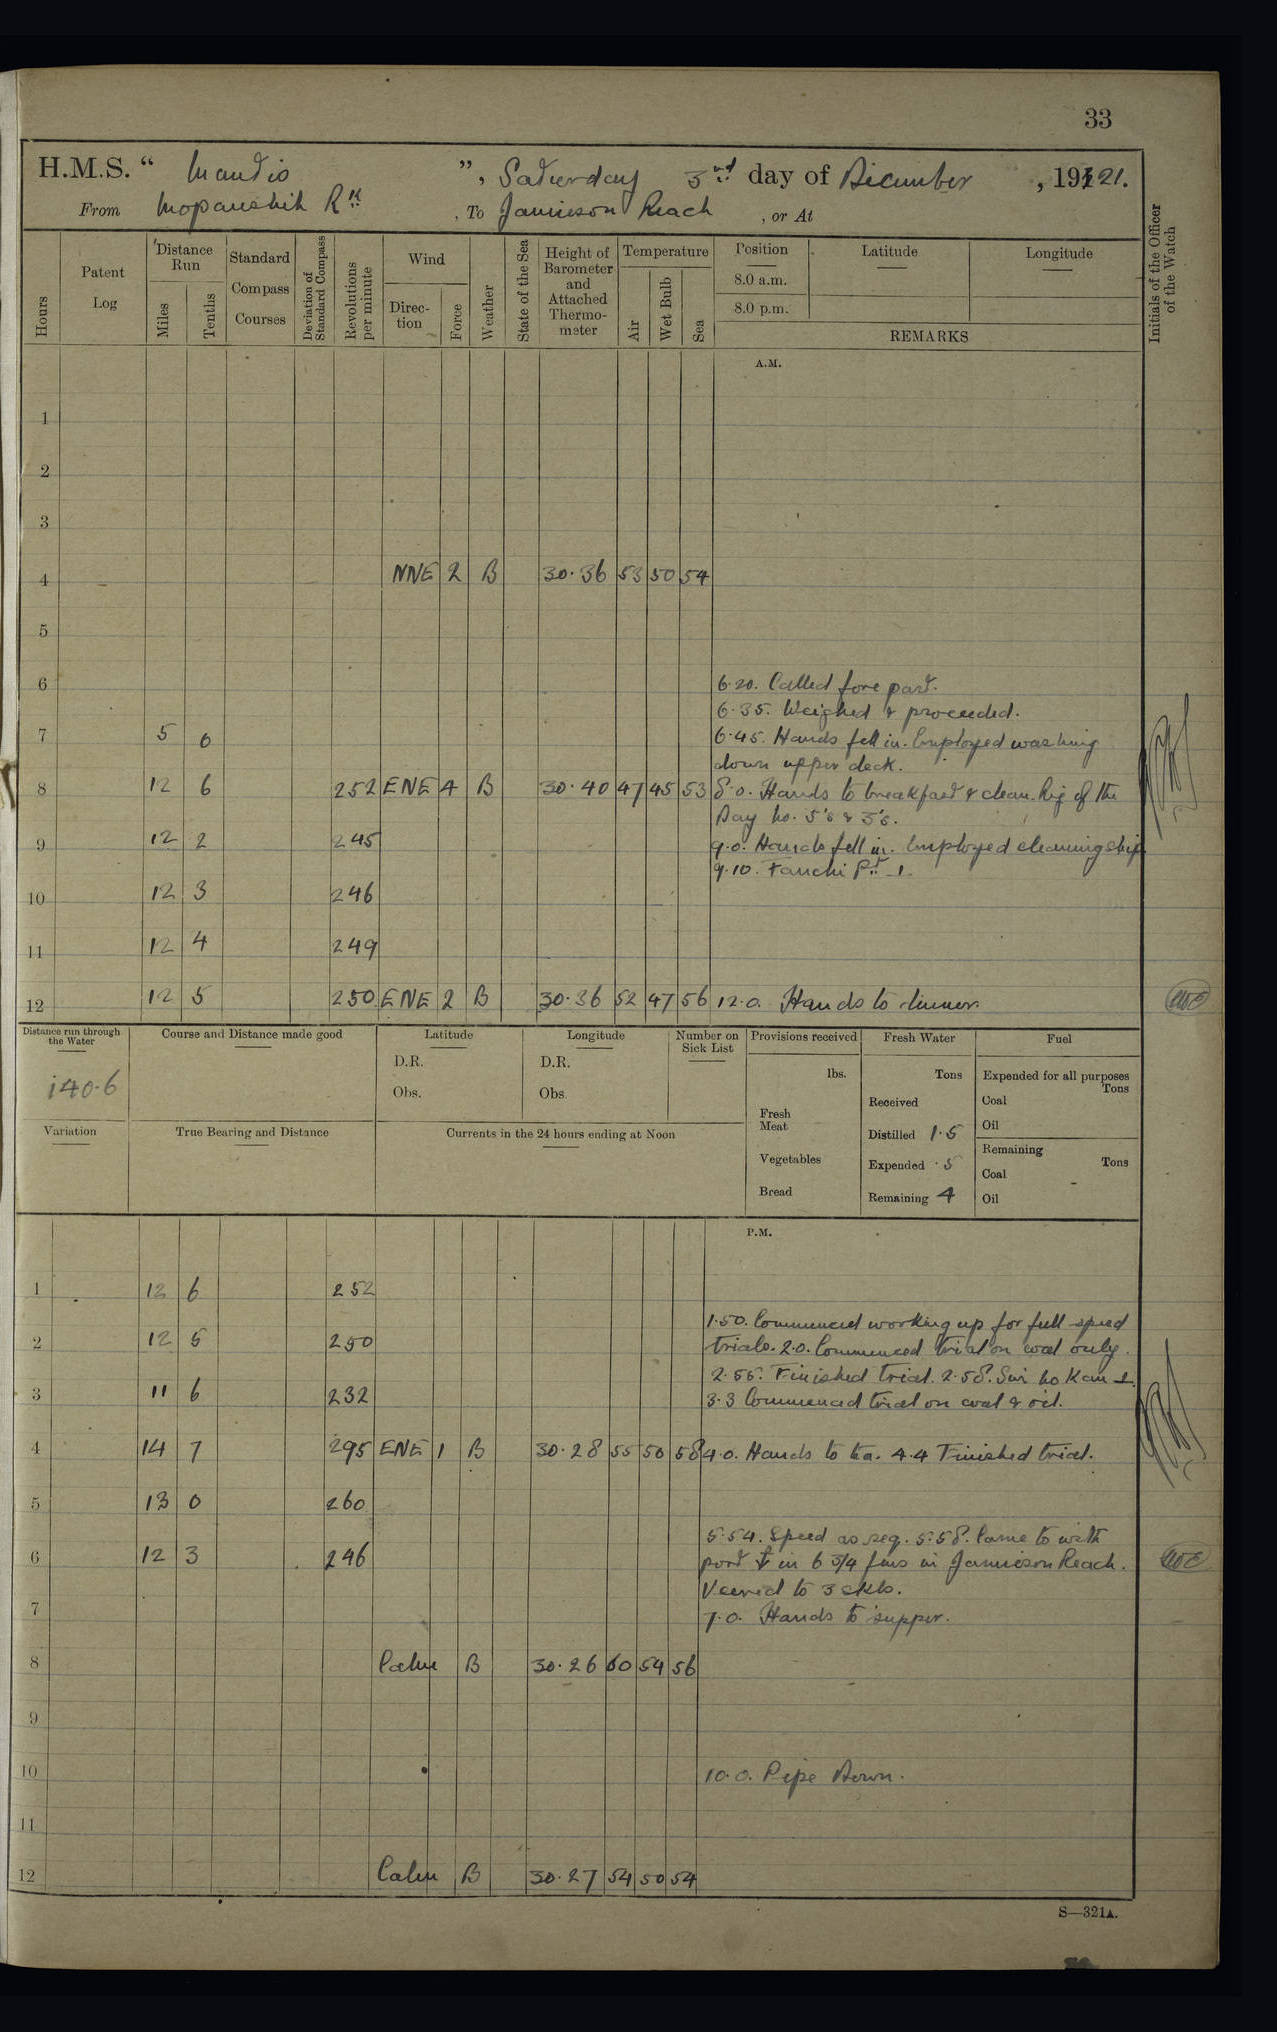 33
H.M.S. “ Mantis ”, Saturday 3rd day of December, 1921.
From Mopanshih Rk, To Jamieson Reach, or At
Hours
Patent Log
Distance Run
Miles
Tenths
Standard Compass Courses
Deviation of Standard Compass
Revolutions per minute
Wind
Direction
Force
Weather
State of the Sea
Height of Barometer and Attached Thermometer
Temperature
Air
Wet Bulb
Sea
Position
8.0 a.m.
8.0 p.m.
Latitude
Longitude
REMARKS
Initials of the Officer of the Watch
A.M.
1
2
3
4 NNE 2 B 30.36 53 50 54
5
6 6.20. Called fore part.
6.35. Weighed & proceeded.
7 5 0 6.45. Hands fell in. Employed washing
down upper deck.
8 12 6 252 ENE 4 B 30.40 47 45 53 8.0. Hands to breakfast & clean. Rig of the
Day No. 5's & 3's.
9 12 2 245 9.0. Hands fell in. Employed cleaning ship.
9.10. Fauchi Pt ⊥
10 12 3 246
11 12 4 249
12 12 5 250 ENE 2 B 30.36 52 47 56 12.0. Hands to dinner.
Distance run through the Water
140.6
Course and Distance made good
Latitude
D.R.
Obs.
Longitude
D.R.
Obs.
Number on Sick List
Provisions received
lbs.
Fresh Meat
Vegetables
Bread
Fresh Water
Tons
Received
Distilled 1.5
Expended .5
Remaining 4
Fuel
Expended for all purposes
Tons
Coal
Oil
Remaining
Tons
Coal
Oil
Variation
True Bearing and Distance
Currents in the 24 hours ending at Noon
P.M.
1 12 6 252
1.50. Commenced working up for full speed
2 12 5 250 trials. 2.0. Commenced trial on coal only.
2.55. Finished trial. 2.58. Sui Ho Kau ⊥.
3 11 6 232 3.3 Commenced trial on coal & oil.
4 14 7 295 ENE 1 B 30.28 55 50 58 4.0. Hands to tea. 4.4 Finished trial.
5 13 0 260
5.54. Speed as req. 5.58. Came to with
6 12 3 246 port ⚓ in 6 3/4 fms in Jamieson Reach.
Veered to 3 shks.
7 7.0. Hands to supper.
8 Calm B 30.26 60 54 56
9
10 10.0. Pipe Down.
11
12 Calm B 30.27 54 50 54
S—321A.